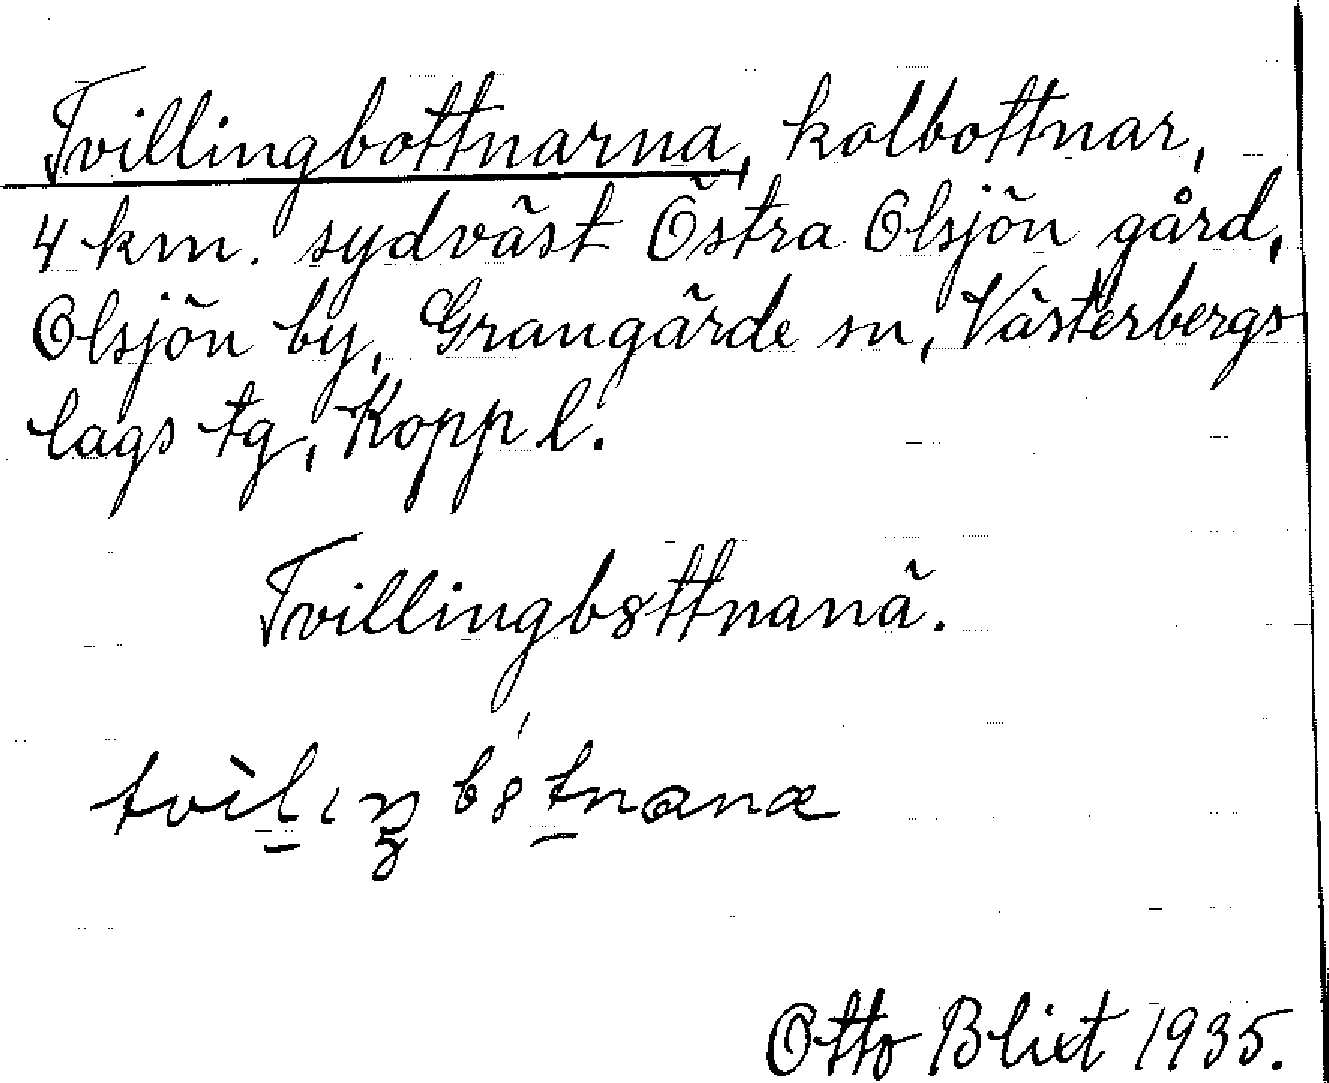 Tvillingbottnarna, kolbottnar,
4 km. sydväst Östra Olsjön gård,
Olsjön by, Grangärde sn, Västerbergs
lags tg, Kopp l.
Tvillingb8ttnanä.
tvìl̠ıŋb8́t̠nanæ
Otto Blixt 1935.